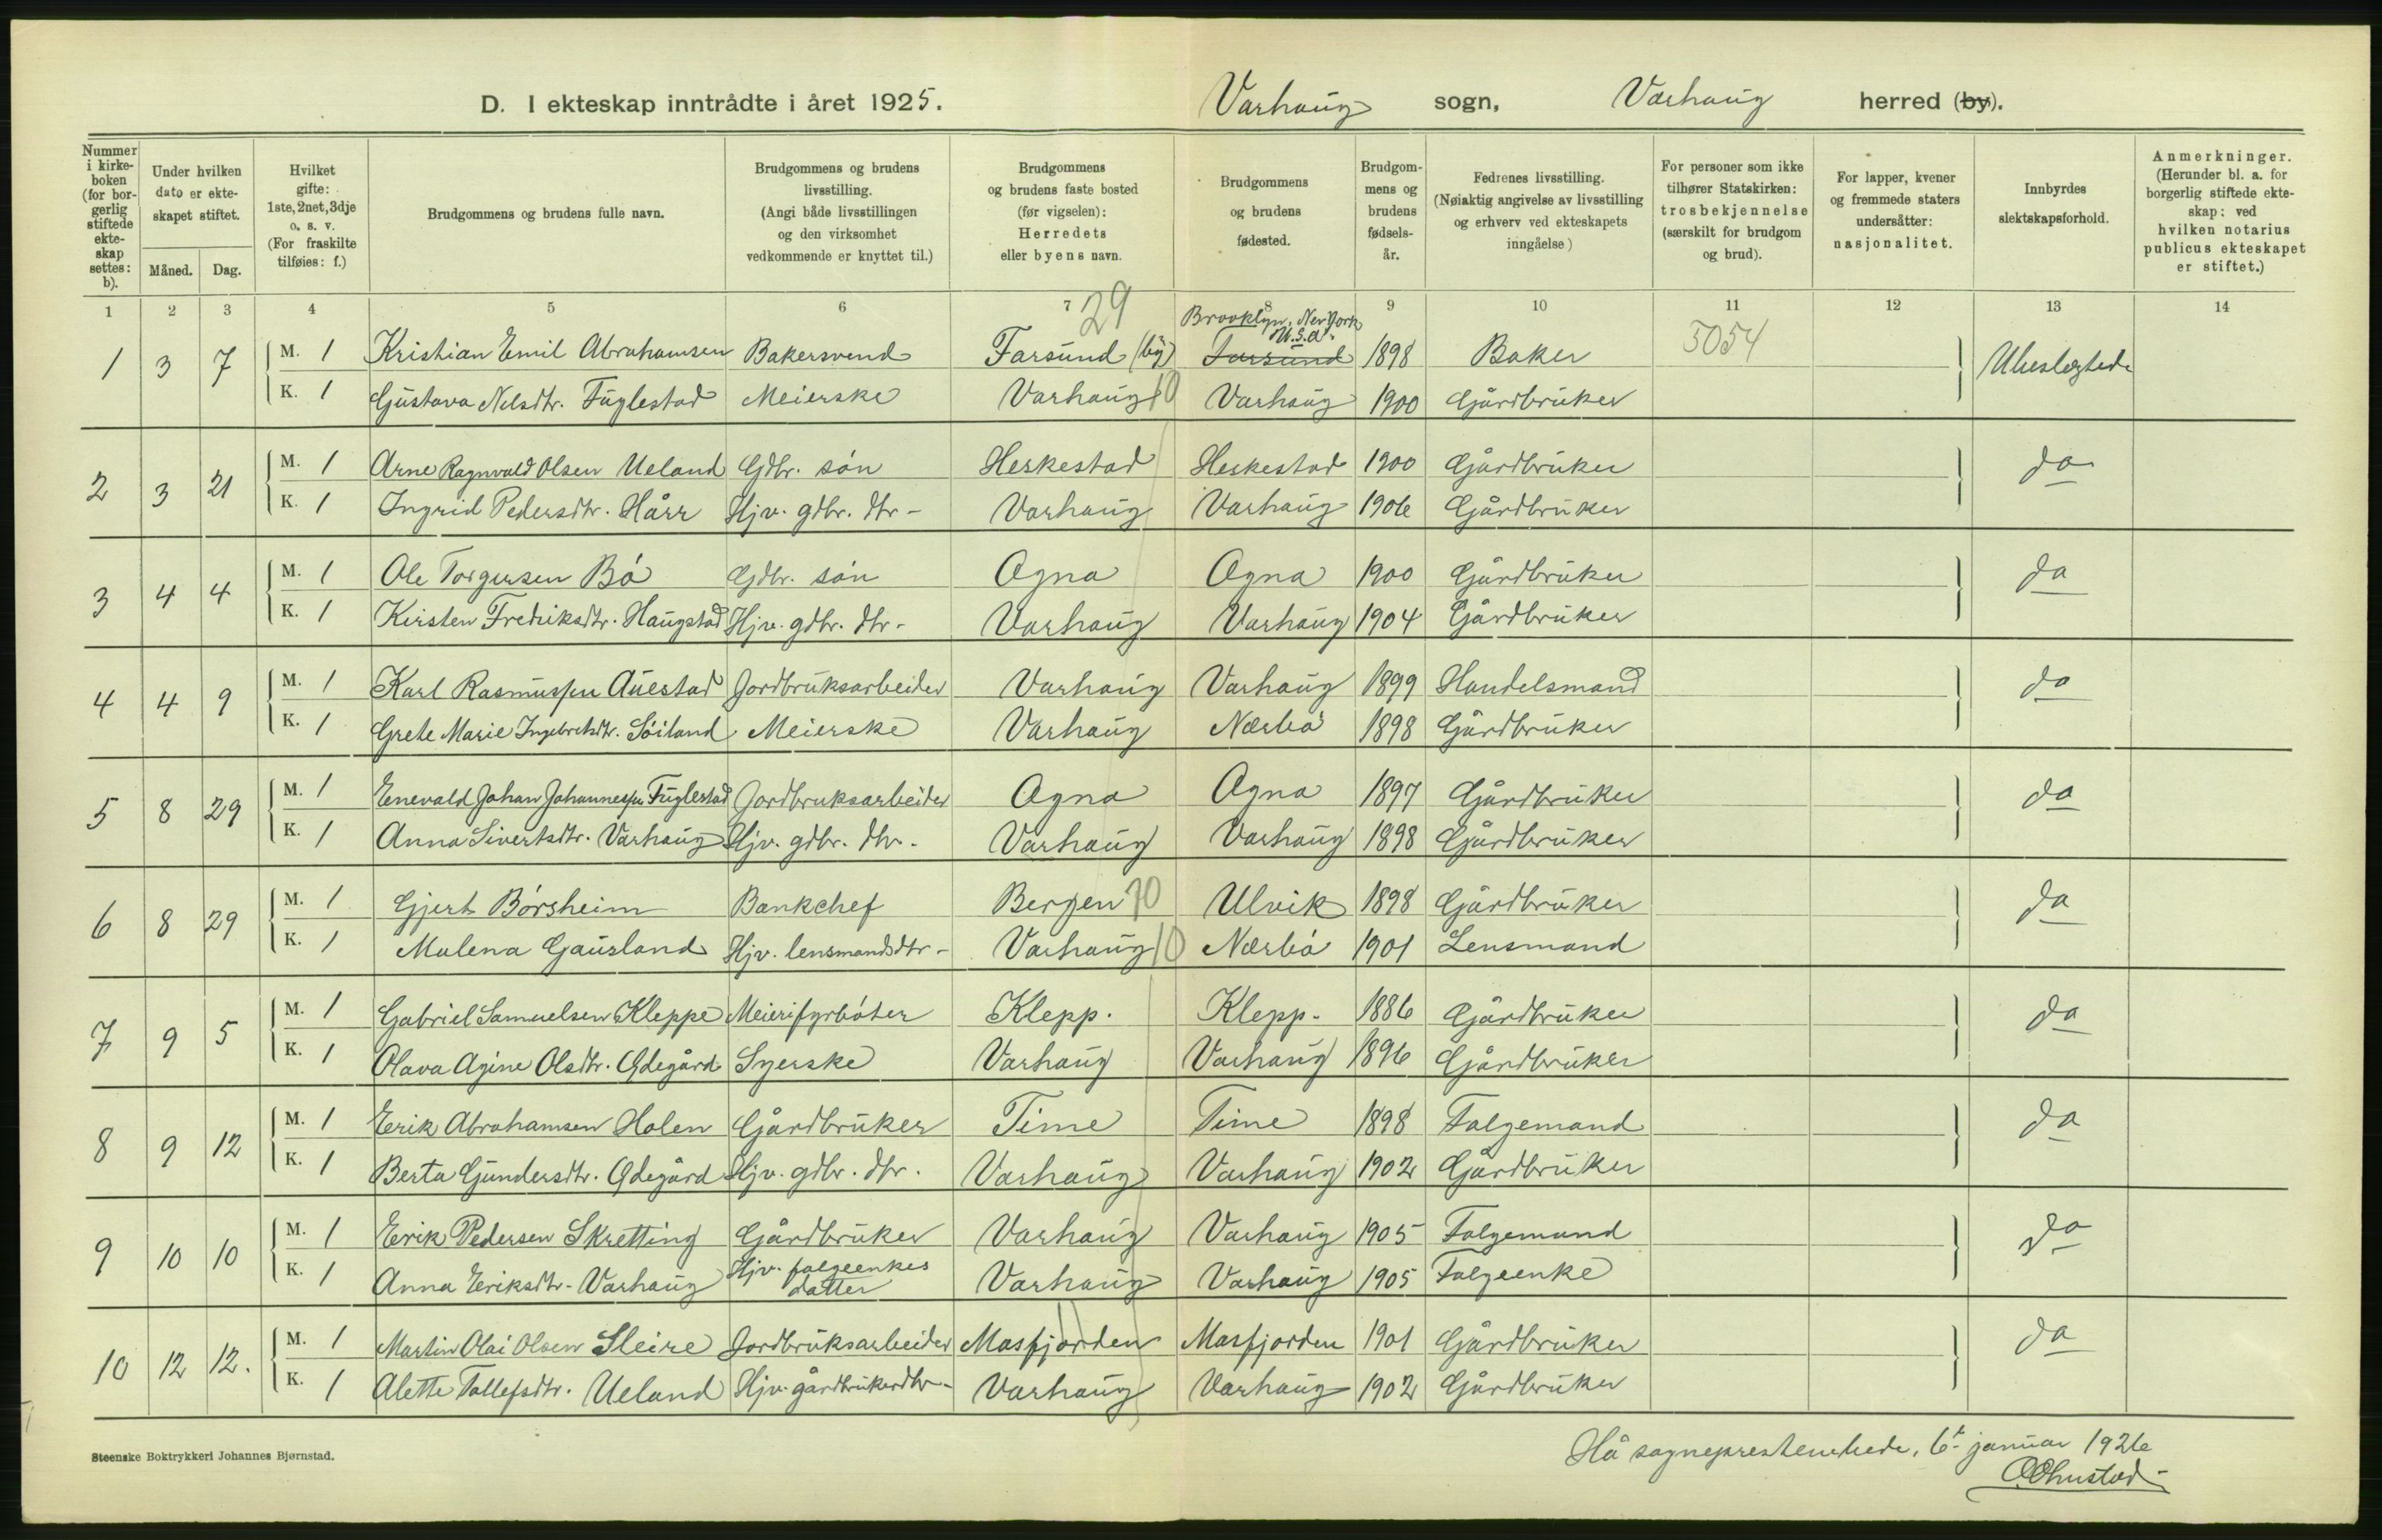 D. I ekteskap inntrådte i året 1925. Varhaug sogn, Varhaug herred (by).
Nummer i kirkeboken (for borgerlig stiftede ekteskap settes: b).
Under hvilken dato er ekteskapet stiftet.
Måned. Dag.
Hvilket gifte: 1ste, 2net, 3dje o. s. v. (For fraskilte tilføies: f.)
Brudgommens og brudens fulle navn.
Brudgommens og brudens livsstilling. (Angi både livsstillingen og den virksomhet vedkommende er knyttet til.)
Brudgommens og brudens faste bosted (før vigselen): Herredets eller byens navn.
Brudgommens og brudens fødested.
Brudgommens og brudens fødselsår.
Fedrenes livsstilling. (Nøiaktig angivelse av livsstilling og erhverv ved ekteskapets inngåelse)
For personer som ikke tilhører Statskirken: trosbekjennelse (særskilt for brudgom og brud).
For lapper, kvener og fremmede staters undersåtter: nasjonalitet.
Innbyrdes slektskapsforhold.
Anmerkninger. (Herunder bl. a. for borgerlig stiftede ekteskap: ved hvilken notarius publicus ekteskapet er stiftet.)
1 2 3 4 5 6 7 8 9 10 11 12 13 14
29
Brooklyn, New York
U.S.a.
1 3 7 M. 1 Kristian Emil Abrahamsen Bakersvend Farsund (by) Farsund 1898 Baker 5054 Ubeslegtede
K. 1 Gustava Nelsdtr. Fuglestad Meierske Varhaug 10 Varhaug 1900 Gårdbruker
2 3 21 M. 1 Arne Ragnvald Olsen Ueland Gdbr. søn Heskestad Heskestad 1900 Gårdbruker do
K. 1 Ingrid Pedersdtr. Hårr Hjv. gdbr. dtr- Varhaug Varhaug 1906 Gårdbruker
3 4 4 M. 1 Ole Torgersen Bø Gdbr. søn Ogna Ogna 1900 Gårdbruker do
K. 1 Kirsten Fredriksdtr. Haugstad Hjv. gdbr. dtr- Varhaug Varhaug 1904 Gårdbruker
4 4 9 M. 1 Karl Rasmussen Auestad Jordbruksarbeider Varhaug Varhaug 1899 Handelsmand do
K. 1 Grete Marie Ingebretsdtr. Søiland Meierske Varhaug Nærbø 1898 Gårdbruker
5 8 29 M. 1 Enevald Johan Johannessen Fuglestad Jordbruksarbeider Ogna Ogna 1897 Gårdbruker do
K. 1 Anna Sivertsdtr. Varhaug Hjv. gdbr. dtr. Varhaug Varhaug 1898 Gårdbruker
6 8 29 M. 1 Gjert Børsheim Bankchef Bergen 70 Ulvik 1898 Gårdbruker do
K. 1 Malena Gausland Hjv. lensmandsdtr- Varhaug 10 Nærbø 1901 Lensmand
7 9 5 M. 1 Gabriel Samuelsen Kleppe Meierifyrbøter Klepp. Klepp. 1886 Gårdbruker do
K. 1 Olava Agine Olsdtr. Ødegård Syerske Varhaug Varhaug 1896 Gårdbruker
8 9 12 M. 1 Erik Abrahamsen Holen Gårdbruker Time Time 1898 Folgemand do
K. 1 Berta Gundersdtr. Ødegård Hjv. gdbr. dtr. Varhaug Varhaug 1902 Gårdbruker
9 10 10 M. 1 Erik Pedersen Skretting Gårdbruker Varhaug Varhaug 1905 Folgemand do
K. 1 Anna Eriksdtr- Varhaug Hjv. folgeenkes datter Varhaug Varhaug 1905 Folgeenke
10 12 12. M. 1 Martin Olai Olsen Sleire Jordbruksarbeider Masfjorden Masfjorden 1901 Gårdbruker do
K. 1 Alette Tollefsdtr. Ueland Hjv. gårdbrukerdtr- Varhaug Varhaug 1902 Gårdbruker
Steenske Boktrykkeri Johannes Bjørnstad.
Hå sogneprestembede, 6t januar 1926